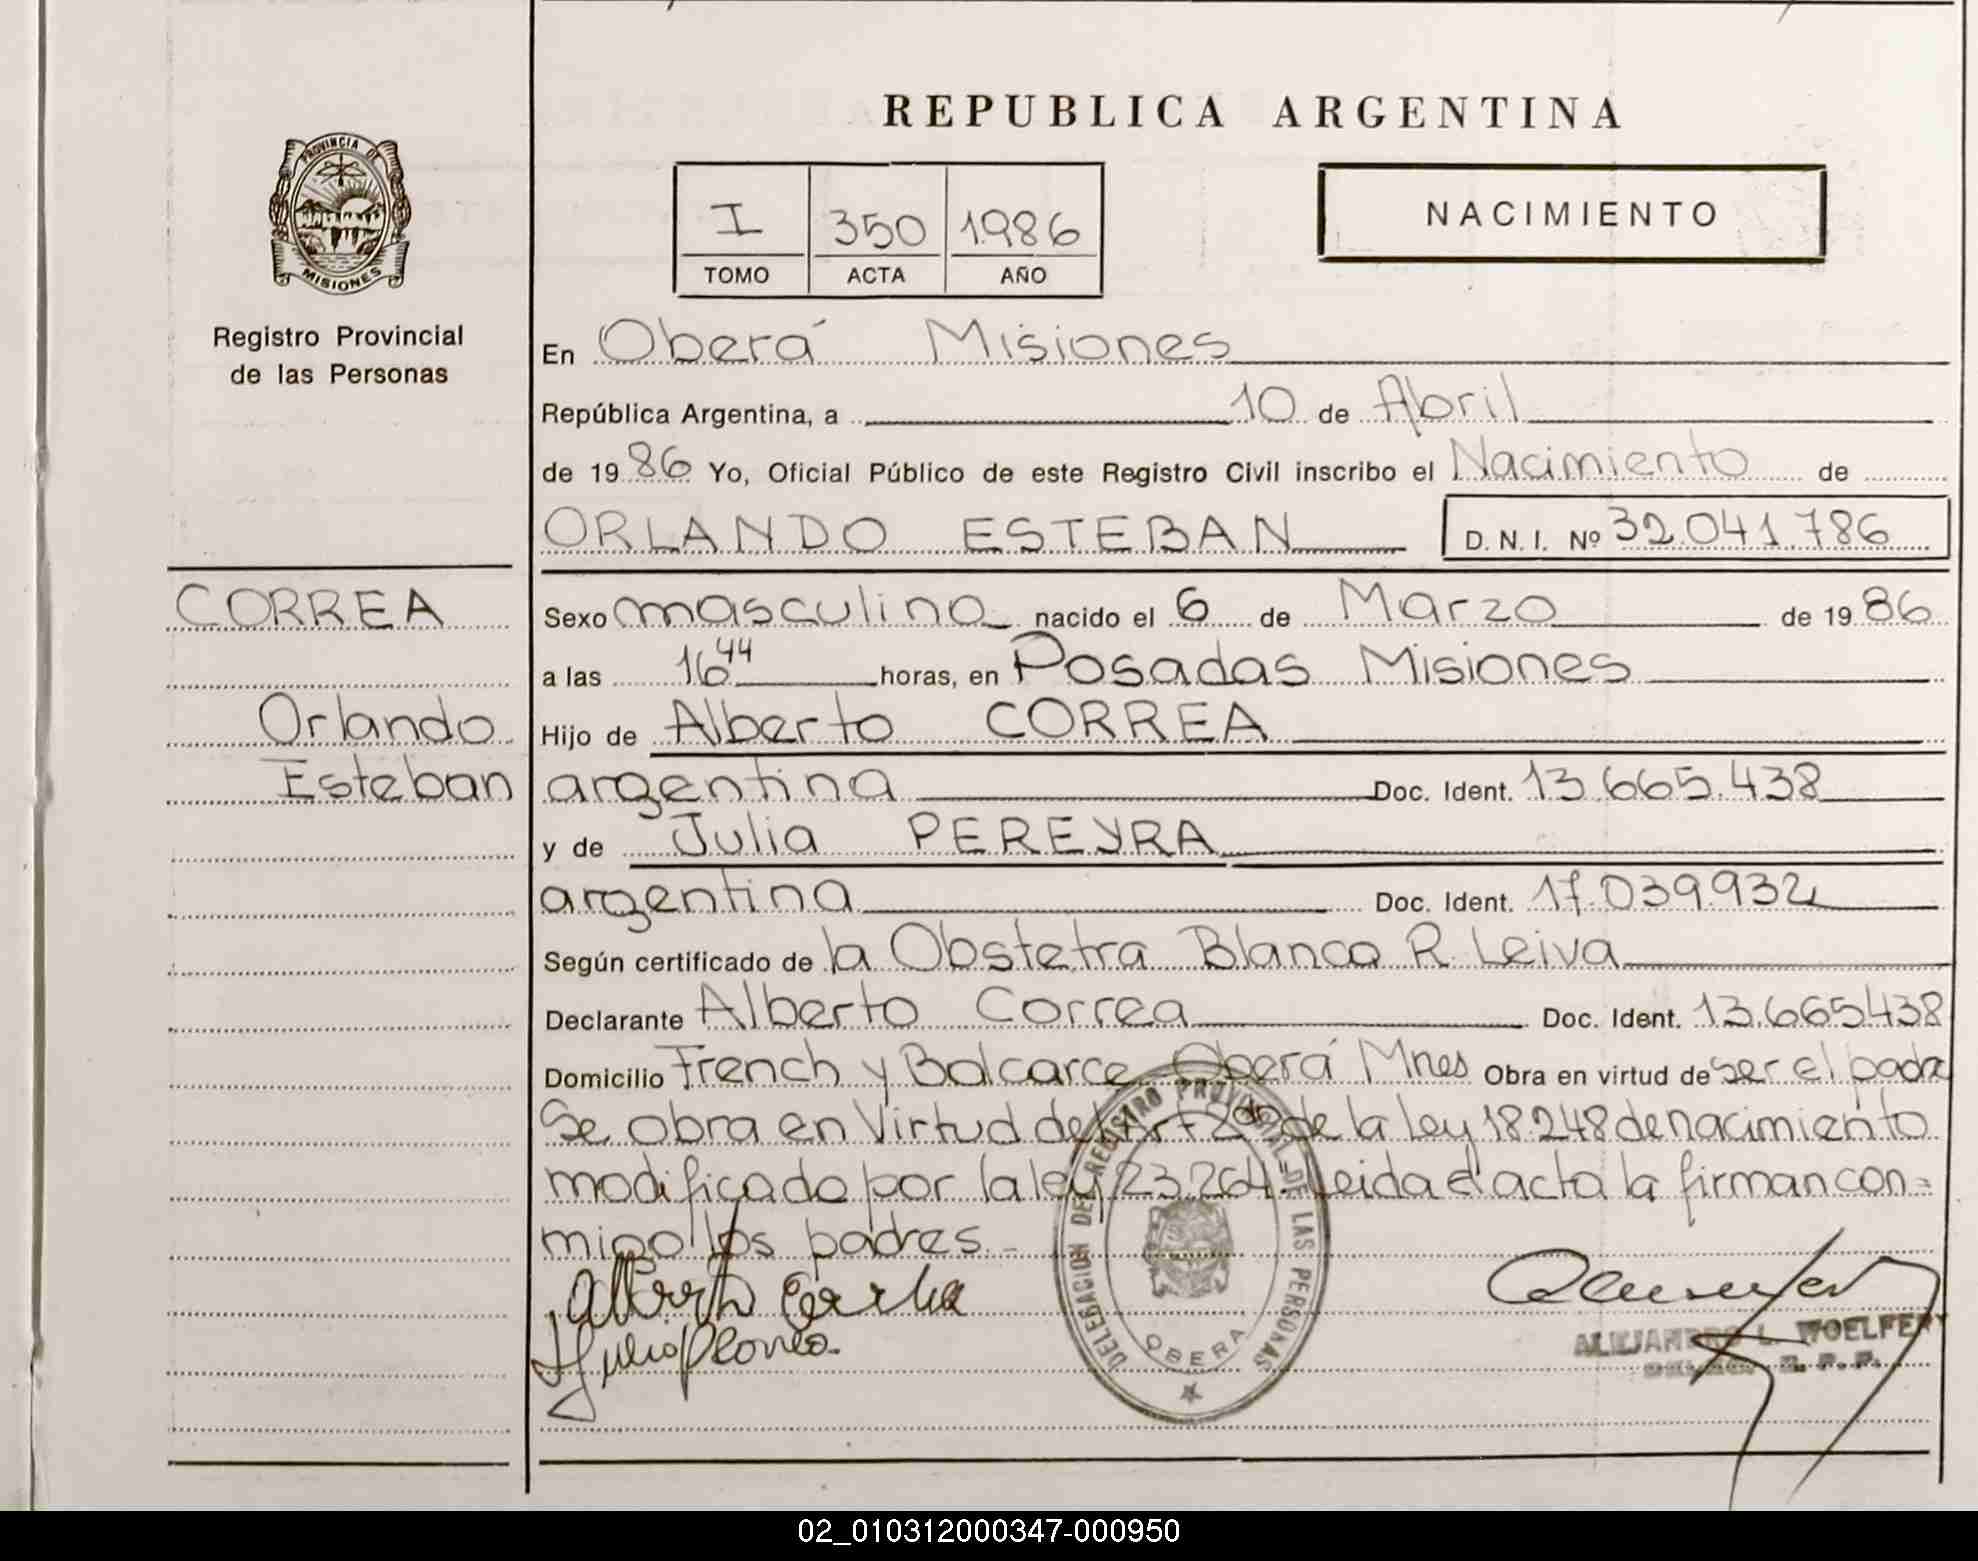 REPUBLICA ARGENTINA
PROVINCIA DE
MISIONES
Registro Provincial
de las Personas
I 350 1.986
TOMO ACTA AÑO
NACIMIENTO
En Oberá Misiones
República Argentina, a 10 de Abril
de 19 86 Yo, Oficial Público de este Registro Civil inscribo el Nacimiento de
ORLANDO ESTEBAN D. N. I. Nº 32.041.786
CORREA
Orlando
Esteban
Sexo masculino nacido el 6 de Marzo de 19 86
a las 16 44 horas, en Posadas Misiones
Hijo de Alberto CORREA
argentina Doc. Ident. 13.665.438
y de Julia PEREYRA
argentina Doc. Ident. 17.039.932
Según certificado de la Obstetra Blanca R. Leiva
Declarante Alberto Correa Doc. Ident. 13.665438
Domicilio French y Balcarce Oberá Mnes Obra en virtud de ser el padre
Se obra en Virtud del Art 2do de la ley 18.248 de nacimiento
modificado por la ley 23.264. Leida el acta la firman con=
migo los padres.-
DELEGACION DEL REGISTRO PROVINCIAL DE LAS PERSONAS
OBERA
ALEJANDRO L.
R. P. P.
02_010312000347-000950